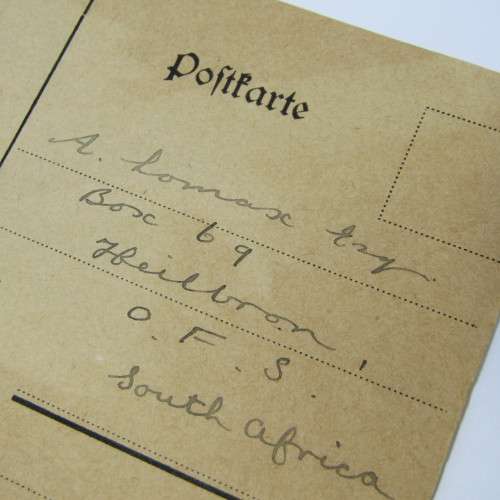 Postkarte
A. Lomax Esq.
Box 69
Heilbron,
O. F. S.
South Africa